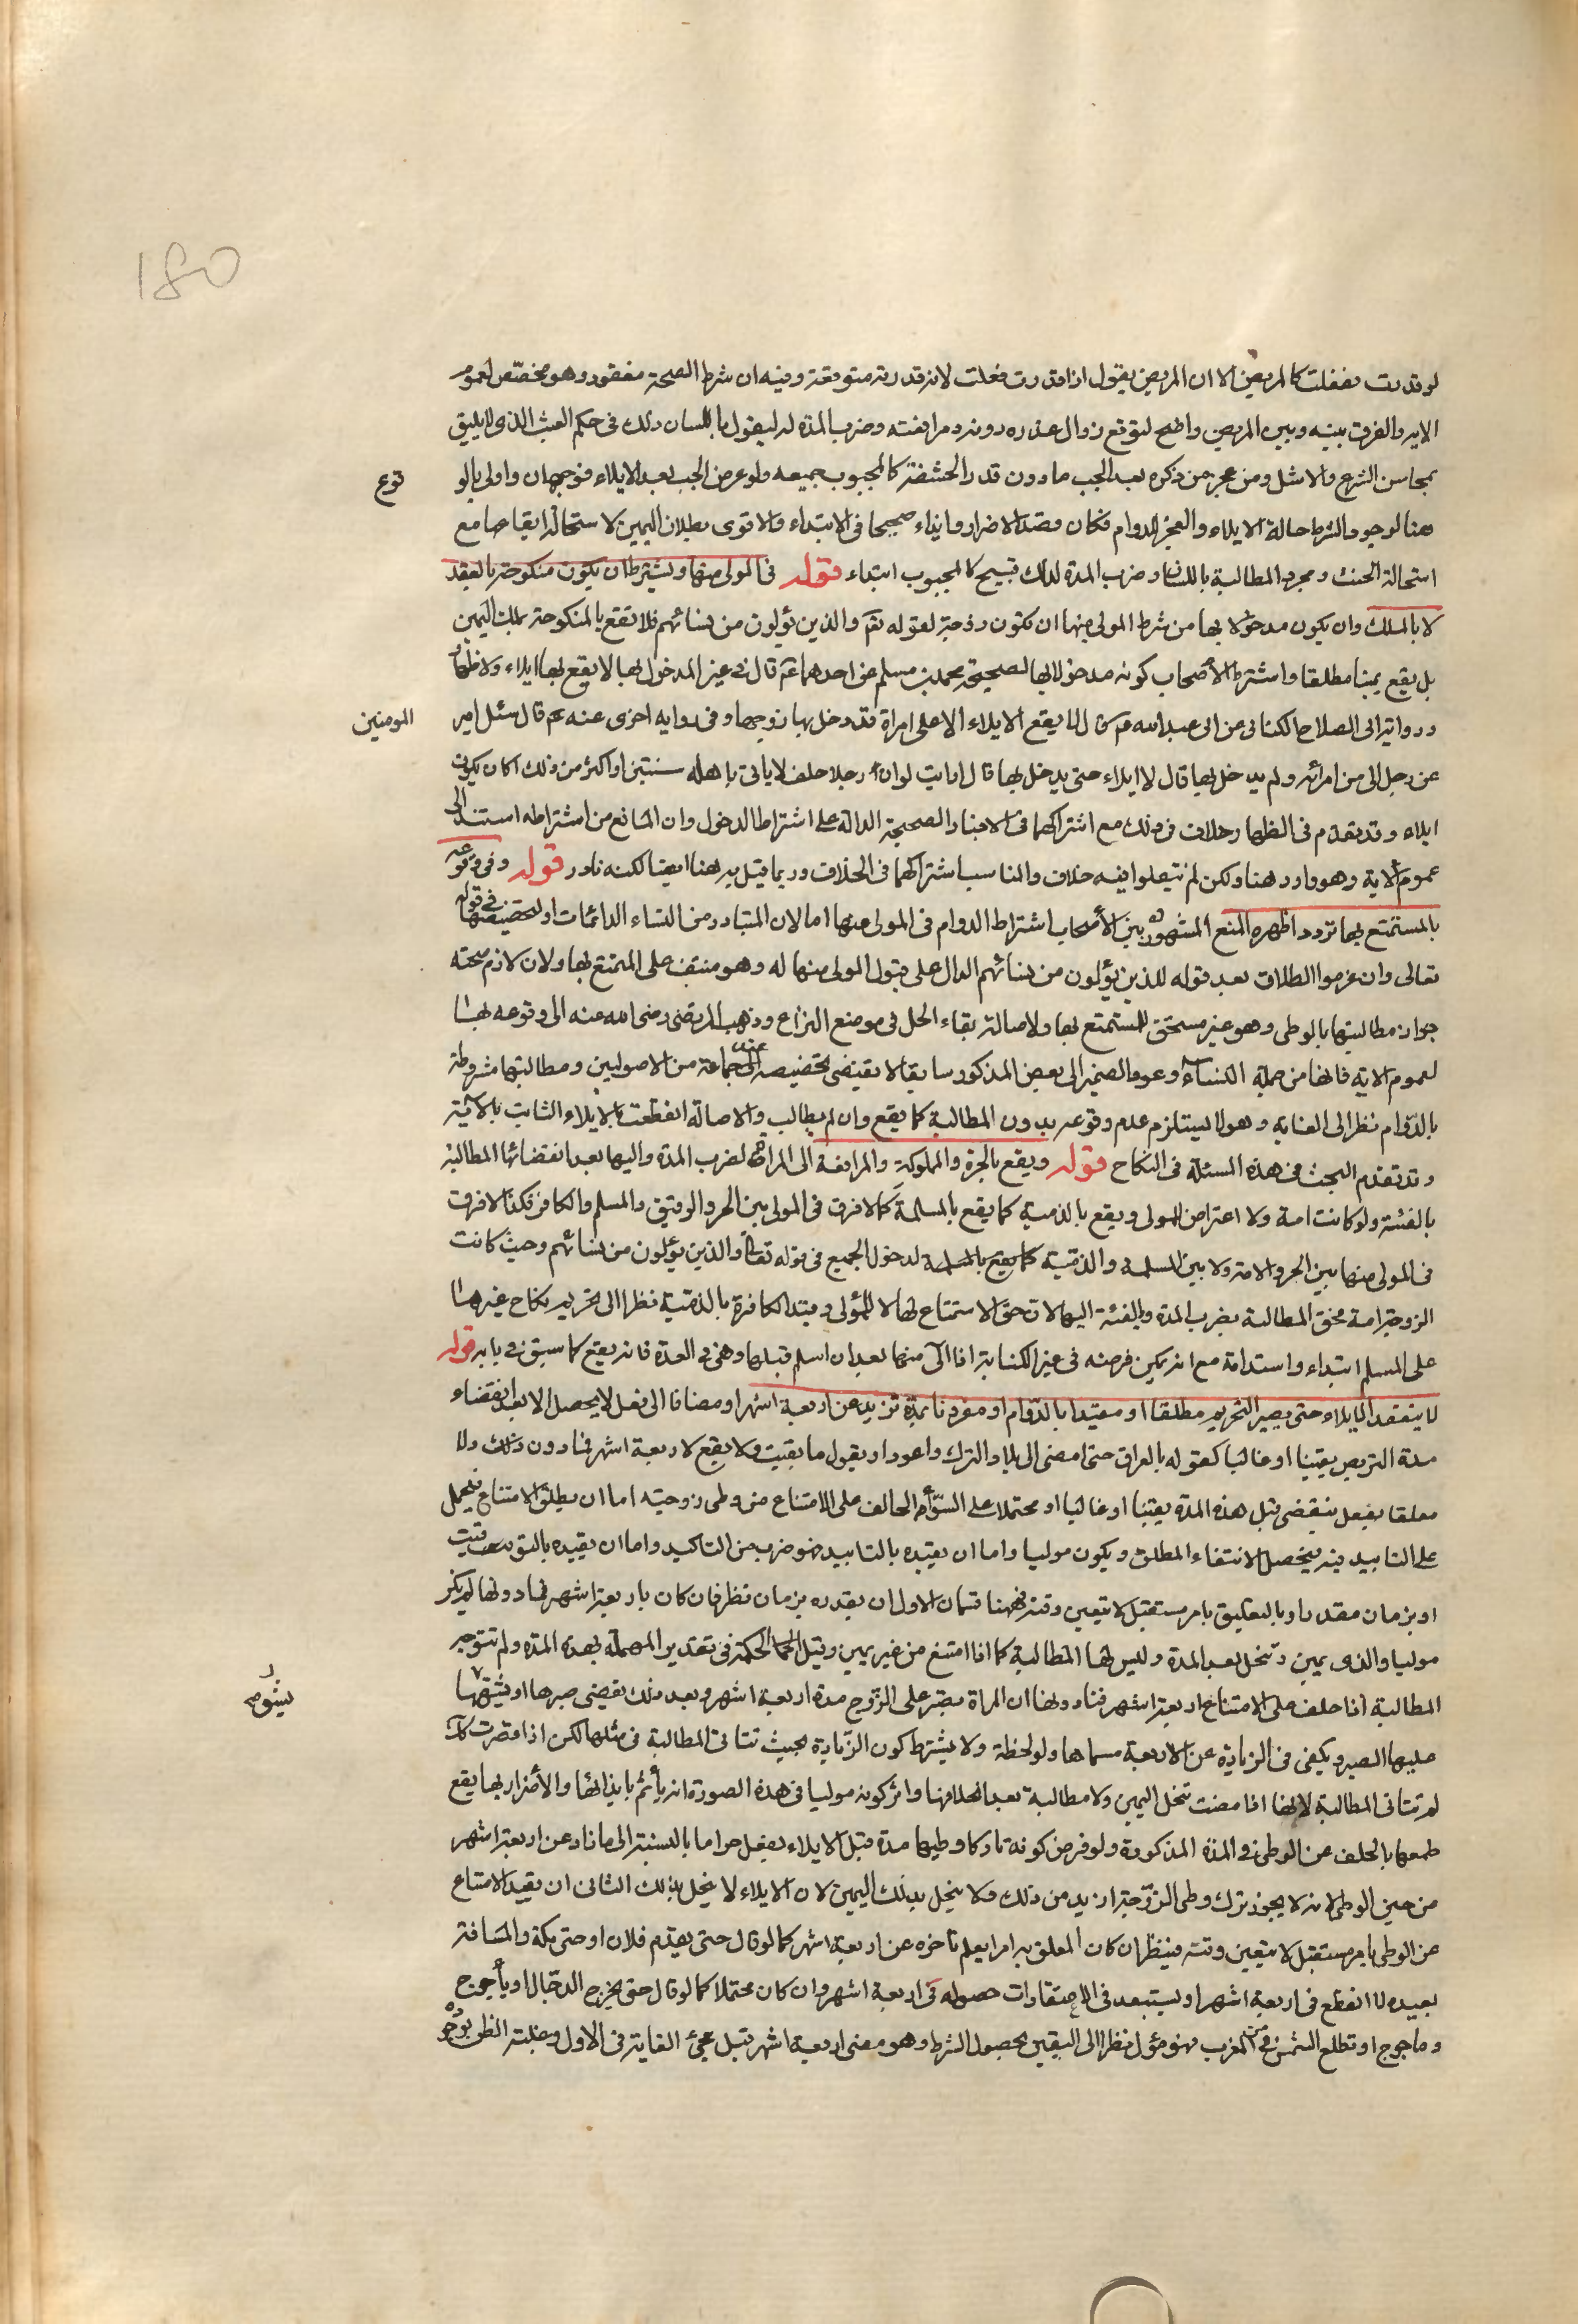 180
لو قدرت لفعلت كالمريض الا ان المريض يقول اذا قدرت فعلت لانه قدرته متوقعة وفيه ان شرط الصحة مفقود وهو مخصص لعموم
الاية والفرق بينه وبين المريض واضح لتوقع زوال عذره دونه ومرافعته وضرب المدة له ليقول باللسان ذلك في حكم العبث الذي لا يليق
بمحاسن الشرع والاشل ومن عجز من ذكره بعد الجب ما دون قدر الحشفة كالمجبوب جميعه ولو عرض الجب بعد الايلاء فوجهان واولى بالو
قوع
هنا لوجود الشرط حالة الايلاء والعجز الدوام فكان قصد الاضرار وايذاء صحيحا في الابتداء والاقوى بطلان اليمين لاستحالة ابقاها مع
استحالة الحنث ومجرد المطالبة باللسان وضرب المدة لذلك قبيح كالمجبوب ابتداء قوله في المولى منها ويشترط ان يكون منكوحة بالعقد
لا بالملك وان يكون مدخولا بها من شرط المولى منها ان تكون زوجة لقوله تعم والذين يؤلون من نسائهم فلا تقع بالمنكوحة بملك اليمين
بل يقع يمينا مطلقا واشترط الأصحاب كونه مدخولا بها لصحيحة محمد بن مسلم عن احدهما عم قال في غير المدخول بها لا يقع بها ايلاء ولا ظهار
ورواية ابي الصلاح الكناني عن ابي عبد الله عم قال لا يقع الايلاء الا على امراة قد دخل بها زوجها وفي رواية اخرى عنه عم قال سئل امير
المومنين
عن رجل الى من امرأته ولم يدخل بها قال لا ايلاء حتى يدخل بها قال ارايت لو ان رجلا حلف لا ياتي باهله سنتين او اكثر من ذلك اكان يكون
ايلاء وقد تقدم في الظهار خلاف في ذلك مع اشتراكهما في الاخبار الصحيحة الدالة على اشتراط الدخول وان المانع من اشتراطه استند الى
عموم الاية وهو وارد هنا ولكن لم ينقلوا فيه خلاف والمناسب اشتراكهما في الخلاف وربما قيل به هنا ايضا لكنه نادر قوله وفي وقوعه
بالمستمتع بها تردد اظهره المنع المشهور بين الأصحاب اشتراط الدوام في المولى منها اما لان المتبادر من النساء الدائمات او لتخصيصها في قوله
تعالى وان عزموا الطلاق بعد قوله للذين يؤلون من نسائهم الدال على قبول المولى منها له وهو منتف على المتمتع بها ولان لازم صحته
جواز مطالبتها بالوطي وهو غير مستحق للمستمتع بها ولاصالة بقاء الحل في موضع النزاع وذهب المرتضى رضي الله عنه الى وقوعه بها
لعموم الاية فانها من جملة النساء وعود الضمير الى بعض المذكور سابقا لا يقتضي تخصيصه عند جماعة من الاصوليين ومطالبتها مشروطة
بالدوام نظر الى الغاية وهو لا يستلزم عدم وقوعه بدون المطالبة كما يقع وان لم يطالب والاصالة انقطعت بالايلاء الثابت بالاية
وقد تقدم البحث في هذه المسئلة في النكاح قوله ويقع بالحرة والمملوكة والمرافعة الى المراة لضرب المدة واليها بعد انقضائها المطالبة
بالفئة ولو كانت امة ولا اعتراض للمولى ويقع بالذمية كما يقع بالمسلمة كما لا فرق في المولى بين الحر والرقيق والمسلم والكافر فكذا لا فرق
في المولى منها بين الحر والامة ولا بين المسلمة والذمية كما يقع بالمسلمة لدخول الجميع في قوله تعالى والذين يؤلون من نسائهم وحيث كانت
الزوجة امة فحق المطالبة بضرب المدة وبالفئة اليها لان حق الاستمتاع لها لا للمولى وقيد الكافرة بالذمية نظرا الى تحريم نكاح غيرها
على المسلم ابتداء واستدامة مع انه يمكن فرضه في غير الكتابية اذا الى منها بعد ان اسلم قبلها وهي في العدة فانه يقع كما سبق في بابه قوله
لا ينعقد الايلاء حتى يصير التحريم مطلقا او مقيدا بالدوام او مقرونا بمدة تزيد عن اربعة اشهر او مضافا الى فعل لا يحصل الا بعد انقضاء
مدة التربص يقينا او غالبا كقوله بالعراق حتى امضى الى بلاد الترك واعود او يقول ما بقيت ولا يقع لاربعة اشهر فما دون ذلك ولا
معلقا بفعل ينقضي قبل هذه المدة يقينا او غالبا او محتملا على السواء الحالف على الامتناع من وطي زوجته اما ان يطلق الامتناع فيحمل
على التابيد فيه ليحصل الانتفاء المطلق ويكون موليا واما ان يقيده بالتابيد فهو ضرب من التاكيد واما ان يقيده بالتوقيت
او بزمان مقدر او بالتعليق بامر مستقبل لا يتعين وقته فههنا قسمان الاول ان يقدره بزمان نظر فان كان باربعة اشهر فما دونها لم يكن
موليا والذي يمين وتنحل بعد المدة وليس لها المطالبة كما اذا امتنع من غير يمين وقيل الحكمة في تقدير المهملة بهذه المدة ولم تتوجه
المطالبة اذا حلف على الامتناع اربعة اشهر فما دونها ان المراة تصبر على الزوج مدة اربعة اشهر وبعد ذلك يفنى صبرها او يشق
يشق
عليها الصبر ويكفي في الزيادة عن الاربعة مسماها ولو لحظة ولا يشترط كون الزيادة بحيث تتاتى المطالبة في مثلها لكن اذا قصرت كذلك
لم تتاتى المطالبة لانها اذا مضت تنحل اليمين ولا مطالبة بعد انحلالها واثر كونه موليا في هذه الصورة انه يأثم بايذائها والأضرار بها يقع
طمعها بالحلف عن الوطي في المدة المذكورة ولو فرض كونه تاركا وطيها مدة قبل الايلاء يفعل حراما بالنسبة الى ما زاد عن اربعة اشهر
من حين الوطي لانه لا يجوز ترك وطي الزوجة ازيد من ذلك ولا ينحل بذلك اليمين لان الايلاء لا ينحل بذلك الثاني ان يقيد الامتناع
عن الوطي بامر مستقبل لا يتعين وقته فينظر ان كان المعلق به امرا يعلم تاخره عن اربعة اشهر كما لو قال حتى يقدم فلان او حتى مكة والمسافة
بعيدة لا انقطع في اربعة اشهر او يستبعد في الاعتقادات حصوله في اربعة اشهر وان كان محتملا كما لو قال حتى يخرج الدجال او يأجوج
وماجوج او تطلع الشمس من المغرب فهو مؤل نظرا الى اليقين بحصول الشرط وهو مضي اربعة اشهر قبل مجئ الغاية في الاول وغلبة الظن بوجوده